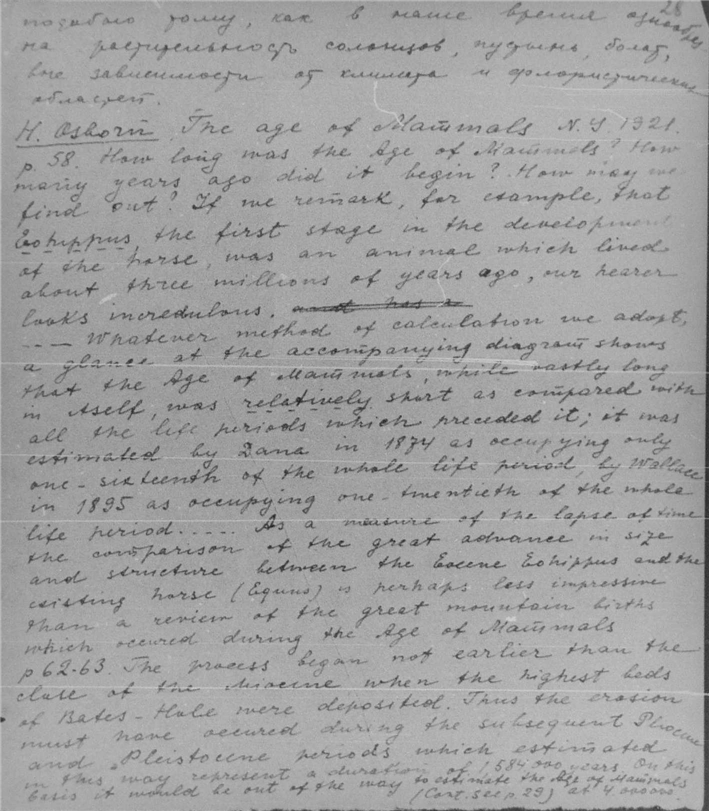 28
подобно тому, как в наше время однообраз
на растительность солонцов, пустынь, болот,
вне зависимости от климата и флористических
областей.
H. Osborn The age of Mammals N.Y. 1921.
p. 58. How long was the Age of Mammals? How
many years ago did it begin? How may we
find out? If we remark, for example, that
Eohippus, the first stage in the development
of the horse, was an animal which lived
about three millions of years ago, our hearer
looks incredulous. and has a
.. — Whatever method of calculation we adopt,
a glance at the accompanying diagram shows
that the Age of Mammals, while vastly long
in itself, was relatively short as compared with
all the life periods which preceded it; it was
estimated by Dana in 1874 as occupying only
one-sixteenth of the whole life period, by Wallace
in 1895 as occupying one-twentieth of the whole
life period..... As a measure of the lapse of time
the comparison of the great advance in size
and structure between the Eocene Eohippus and the
existing horse (Equus) is perhaps less impressive
than a review of the great mountain births
which occured during the Age of Mammals
p 62-63. The process began not earlier than the
close of the Miocene when the highest beds
of Bates-Hole were deposited. Thus the erosion
must have occured during the subsequent Pliocene
and Pleistocene periods which estimated
in this way represent a duration of 1,584000 years. On this
basis it would be out of the way to estimate the Age of Mammals
(Cont. see p. 29) at 4000000